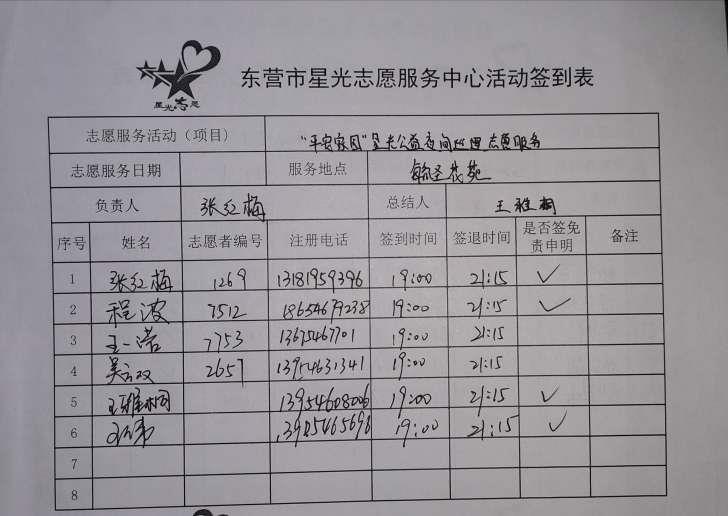 星光志愿
东营市星光志愿服务中心活动签到表
志愿服务活动（项目） "平安家园"星光公益夜间巡逻志愿服务
志愿服务日期 服务地点 毓圣花苑
负责人 张红梅 总结人 王雅桐
序号 姓名 志愿者编号 注册电话 签到时间 签退时间 是否签免责申明 备注
1 张红梅 1269 13181959396 19:00 21:15 ✓
2 程波 7512 18654679238 19:00 21:15 ✓
3 王一诺 7753 13675467701 19:00 21:15
4 吴云双 2657 13954631341 19:00 21:15
5 王雅桐 13954608006 19:00 21:15 ✓
6 19:00 21:15 ✓
7
8